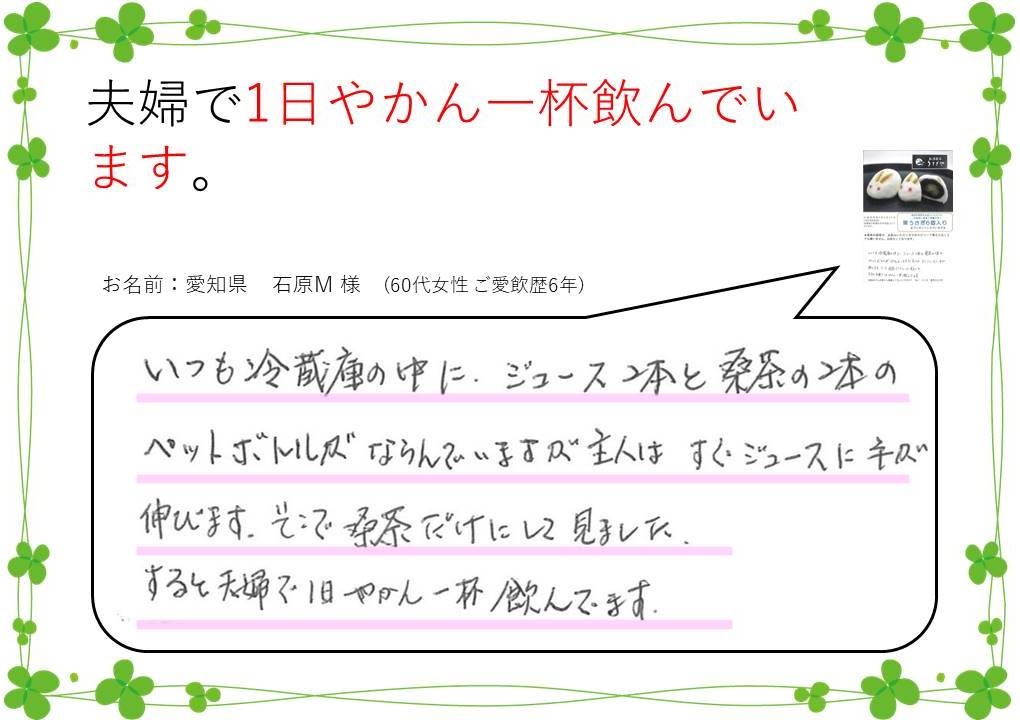 夫婦で1日やかん一杯飲んでい
ます。
お名前：愛知県　石原M 様　（60代女性 ご愛飲歴6年）
いつも冷蔵庫の中に、ジュース2本と桑茶の2本の
ペットボトルがならんでいますが主人は すぐジュースに手が
伸びます。そこで桑茶だけにして見ました。
すると夫婦で1日やかん一杯飲んでます。